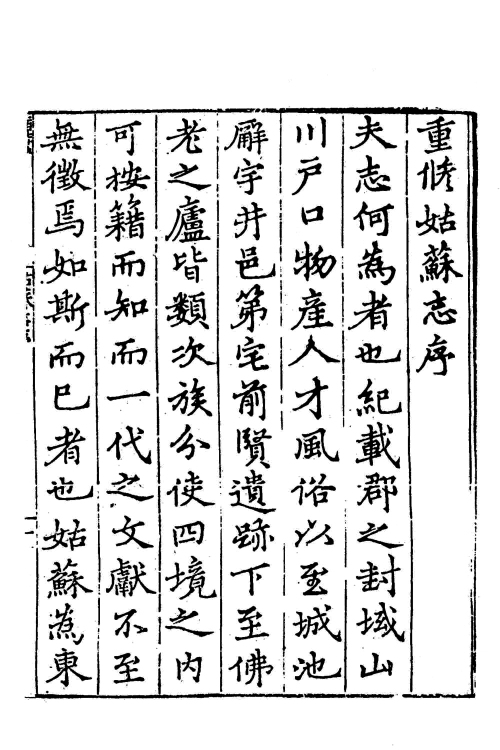 重修姑蘇志序
夫志何為者也紀載郡之封域山
川戶口物產人才風俗以至城池
廨宇井邑第宅前賢遺跡下至佛
老之廬皆類次族分使四境之內
可按籍而知而一代之文獻不至
無徵焉如斯而已者也姑蘇為東